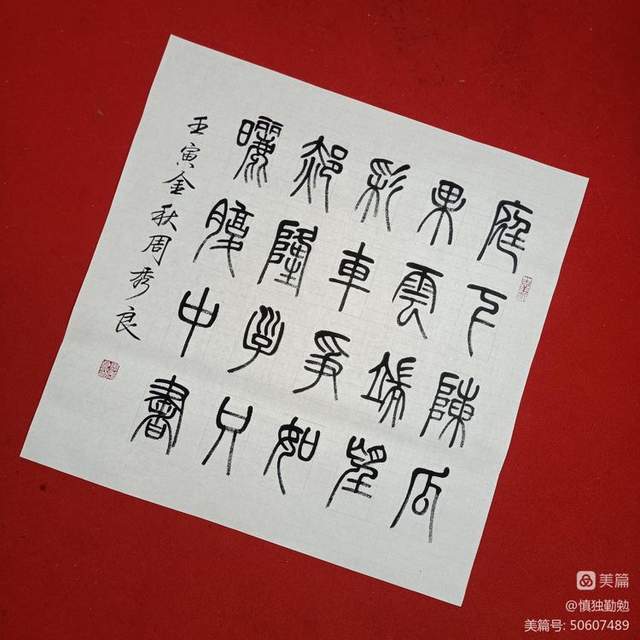 庭下陳瓜
果雲端望
彩車爭如
郝隆學只
曬腹中書
壬寅金秋周秀良
美篇
@慎独勤勉
美篇号: 50607489